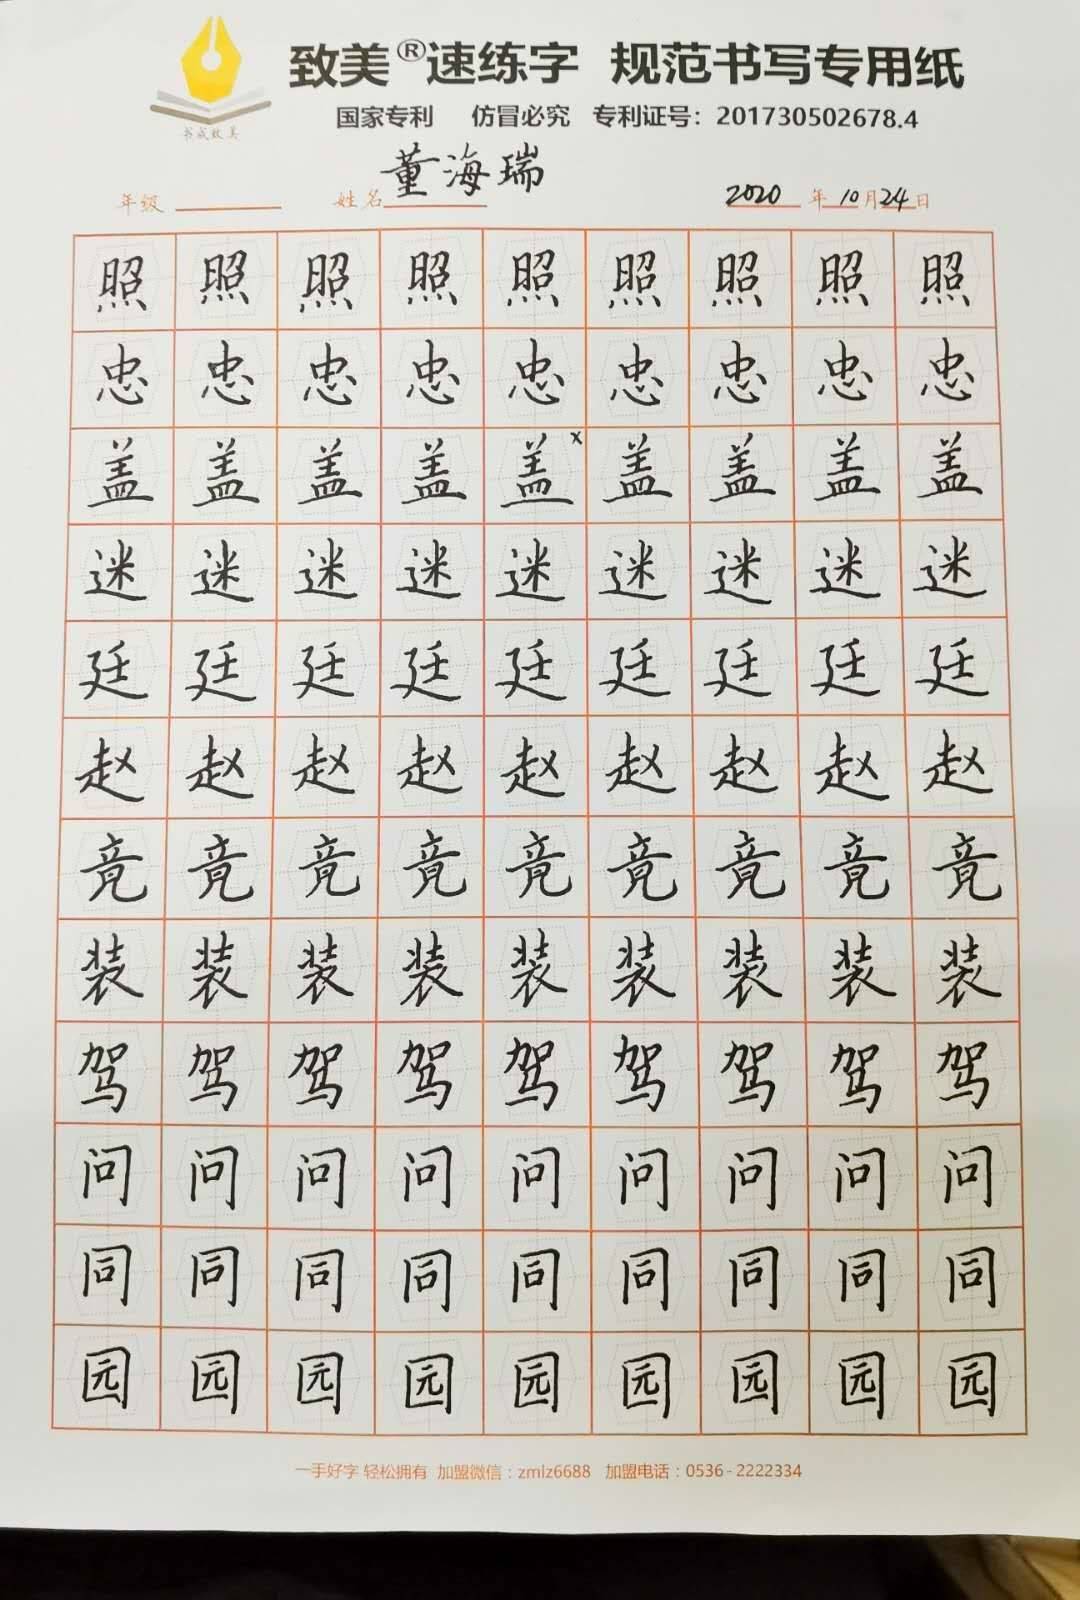 致美®速练字 规范书写专用纸
国家专利 仿冒必究 专利证号：201730502678.4
书成致美
年级 姓名 董海瑞 2020 年 10 月 24 日
照 照 照 照 照 照 照 照 照
忠 忠 忠 忠 忠 忠 忠 忠 忠
盖 盖 盖 盖 盖 x 盖 盖 盖 盖
迷 迷 迷 迷 迷 迷 迷 迷 迷
廷 廷 廷 廷 廷 廷 廷 廷 廷
赵 赵 赵 赵 赵 赵 赵 赵 赵
竟 竟 竟 竟 竟 竟 竟 竟 竟
装 装 装 装 装 装 装 装 装
驾 驾 驾 驾 驾 驾 驾 驾 驾
问 问 问 问 问 问 问 问 问
同 同 同 同 同 同 同 同 同
园 园 园 园 园 园 园 园 园
一手好字 轻松拥有 加盟微信：zmlz6688 加盟电话：0536-2222334